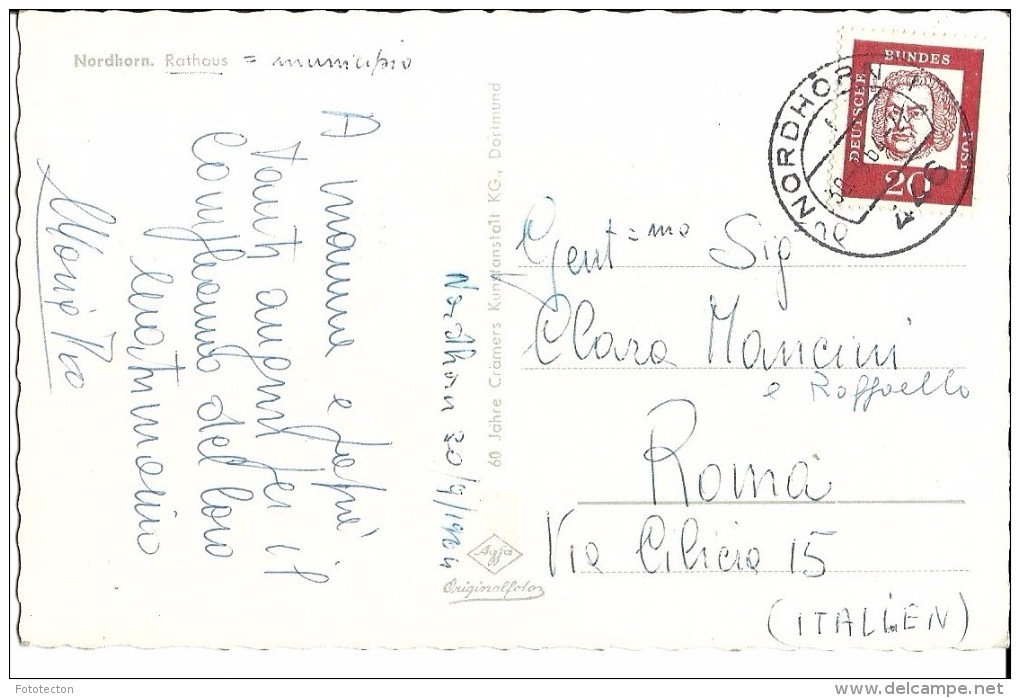 Nordhorn. Rathaus = municipio
A mamma e papà
tanti auguri per il
compleanno del loro
matrimonio
Nordhorn 30/9/1964
60 Jahre Cramers Kunstanstalt KG., Dortmund
Agfa
Originalfoto
NORDHORN
446
DEUTSCHE BUNDES POST
20
Gent=mo Sig
Clara Mancini
e Raffaello
Roma
Via Cilicia 15
(ITALIEN)
© Fototecton
delcampe.net